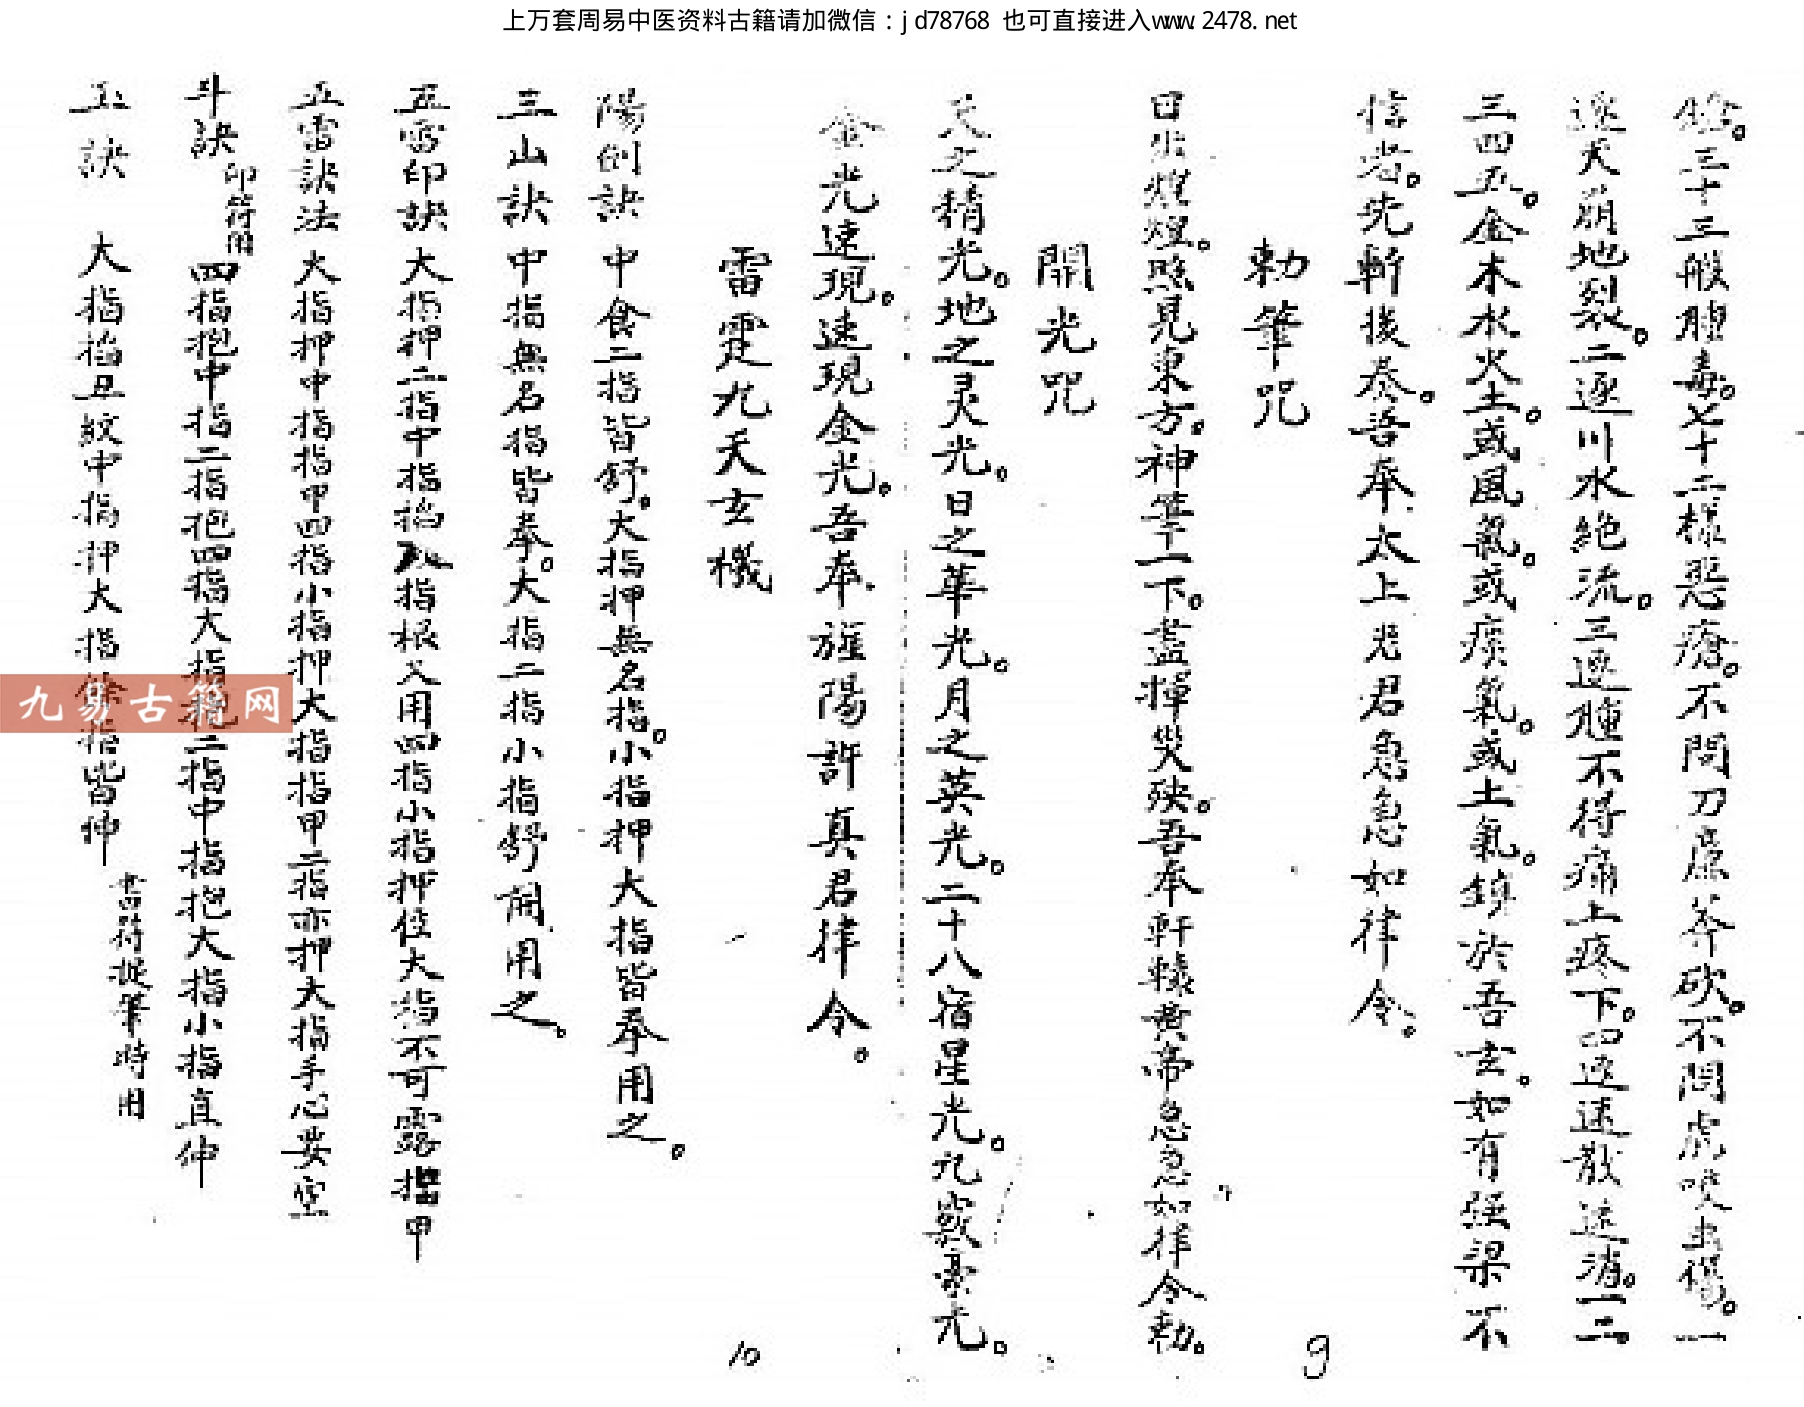 上万套周易中医资料古籍请加微信：jd78768 也可直接进入www.2478.net
三十三般腫毒。七十二樣惡瘡。不問刀斧砍。不問虎咬虫傷。一
逐天崩地裂。二逐川水絶流。三逐腫不得痛上疼下。四逐速散速消。一二
三四五。金木水火土。或風氣。或痰氣。或土氣。鎮於吾玄。如有强梁不
信者。先斬後奏。吾奉太上老君急急如律令。
勅筆咒
日出煌煌。照見東方。神筆一下。盡掃災殃。吾奉軒轅黄帝急急如律令勅。
開光咒
天之精光。地之灵光。日之華光。月之英光。二十八宿星光。九毫光。
金光速現。速現金光。吾奉旌陽許真君律令。
雷霆九天玄機
陽剑訣 中食二指皆舒。大指押無名指。小指押大指皆拳用之。
三山訣 中指無名指皆拳。大指二指小指舒開用之。
五雷印訣 大指押二指中指掐指根又用四指小指押住大指不可露指甲
五雷訣法 大指押中指指甲四指小指押大指指甲二指亦押大指手心要空
斗訣 印符用 四指抱中指二指抱四指大指抱二指中指抱大指小指直伸
玉訣 大指掐丑紋中指押大指餘指皆伸 書符提筆時用
9
10
九易古籍网